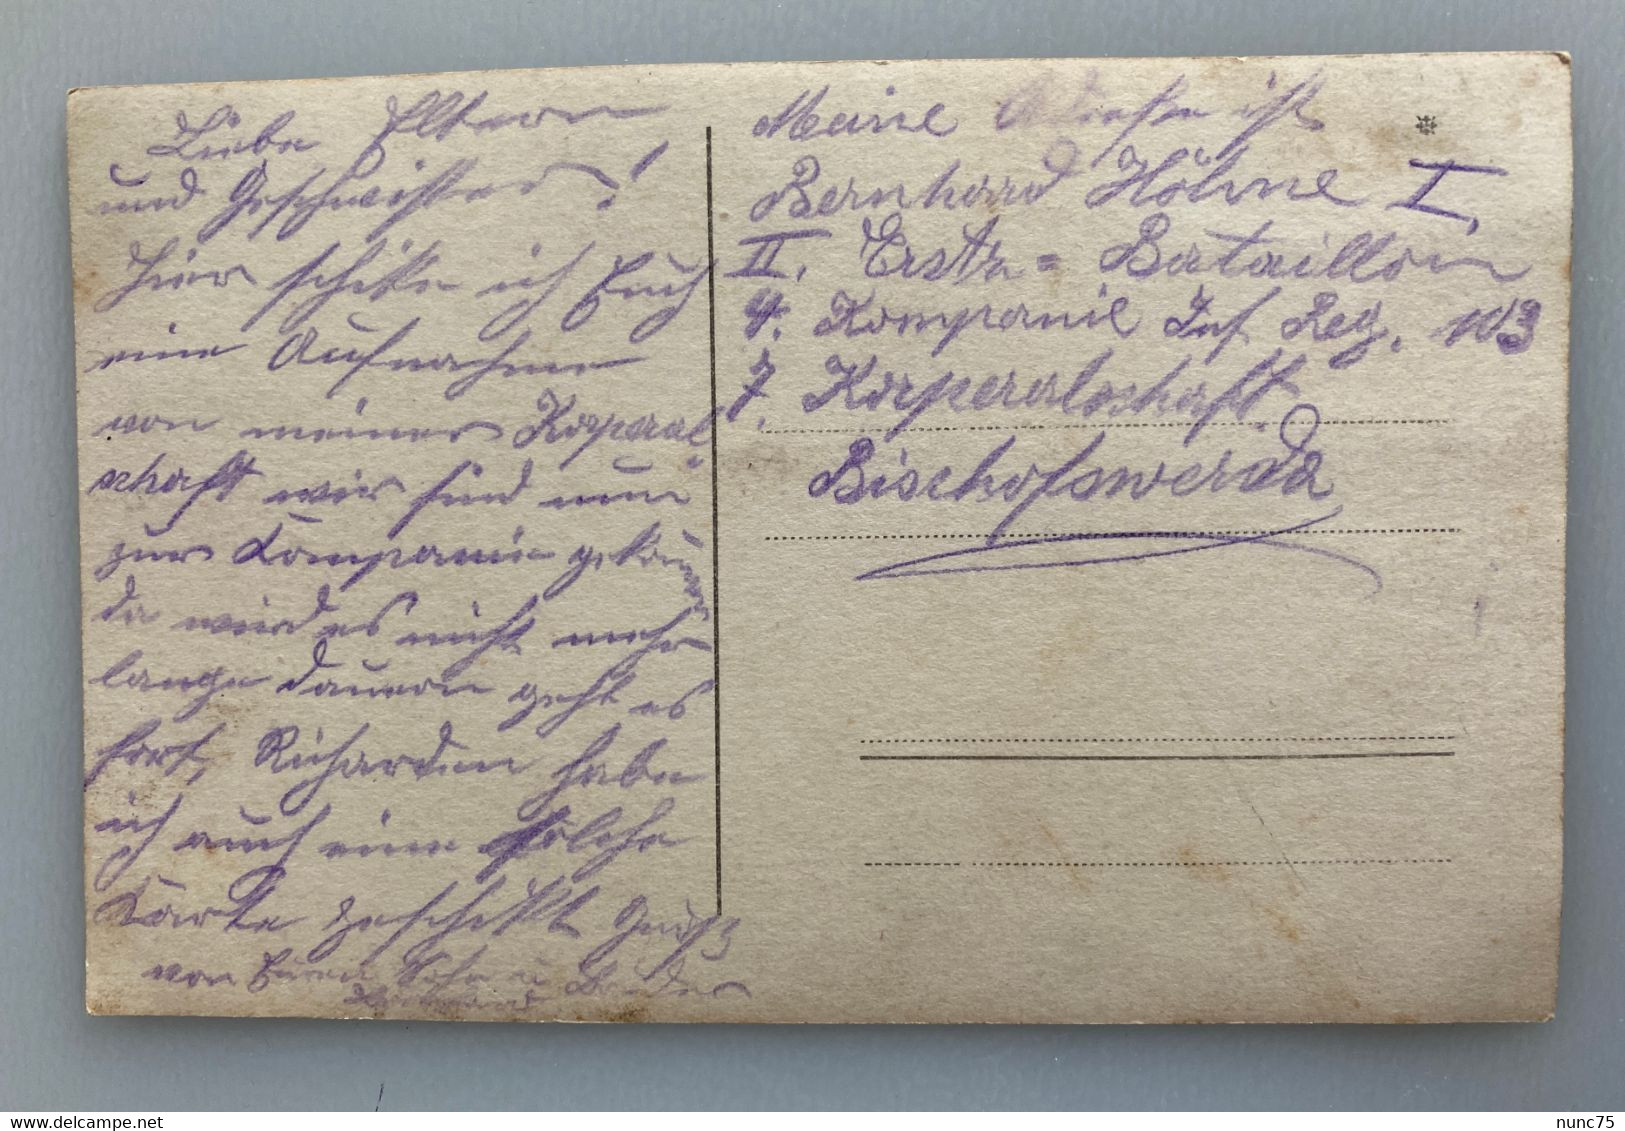 Liebe Eltern
und Geschwister!
Hier schike ich Euch
eine Aufnahme
von meiner Korperal
schaft wir sind nun
zur Kompanie gekommen
da wird es nicht mehr
lange dauern geht es
fort, Richarden habe
ich auch eine solche
Karte geschikt Gruß
von Euren Sohn u Bruder
Bernhard
Meine Adresse ist
Bernhard Höhne I.
II. Ersatz = Bataillon
4. Kompanie Inf Reg. 103
7. Korperalschaft
Bischofswerda
delcampe.net
nunc75